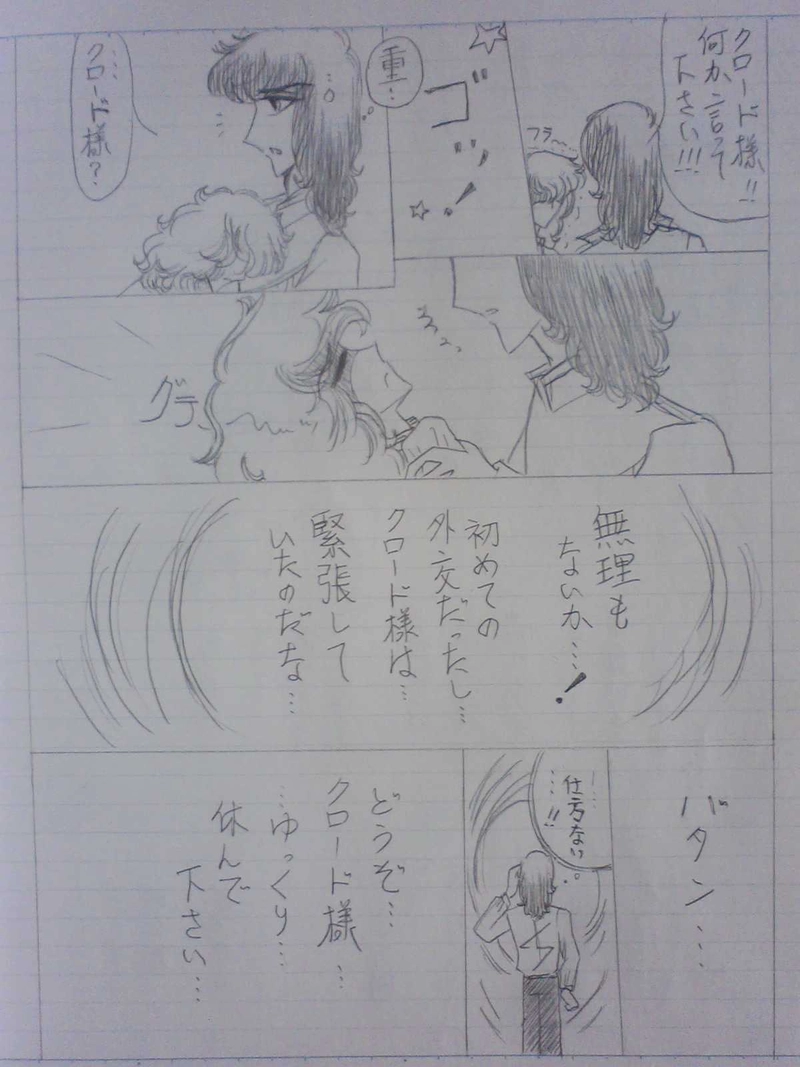 クロード様!!
何か言って
下さい!!!
フラ～
ゴッ!
重…
……
クロード様?
そろっ
グテ
無理も
ないか…!
初めての
外交だったし…
クロード様は…
緊張して
いたのだな…
バタン…
……
仕方ない
…!!
どうぞ…
クロード様…
…ゆっくり…
休んで
下さい…